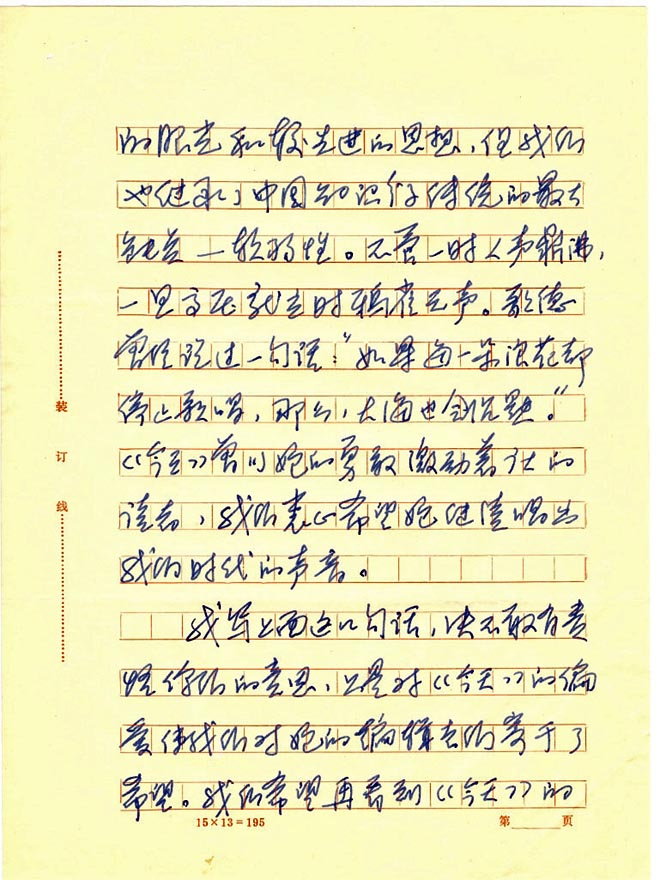 的眼光和较先进的思想，但我们
也继承了中国知识分子传统的最大
缺点——软弱性。不管一时人声鼎沸，
一旦高压就立时鸦雀无声。歌德
曾经说过一句话：“如果每一朵浪花都
停止歌唱，那么，大海也会沉默。”
《今天》曾以她的勇敢激动着她的
读者，我们衷心希望她继续唱出
我们时代的声音。
我写上面这几句话，决不敢有责
怪你们的意思，只是对《今天》的偏
爱使我们对她的编辑者们寄于了
希望。我们希望再看到《今天》的
装
订
线
15×13=195
第 页